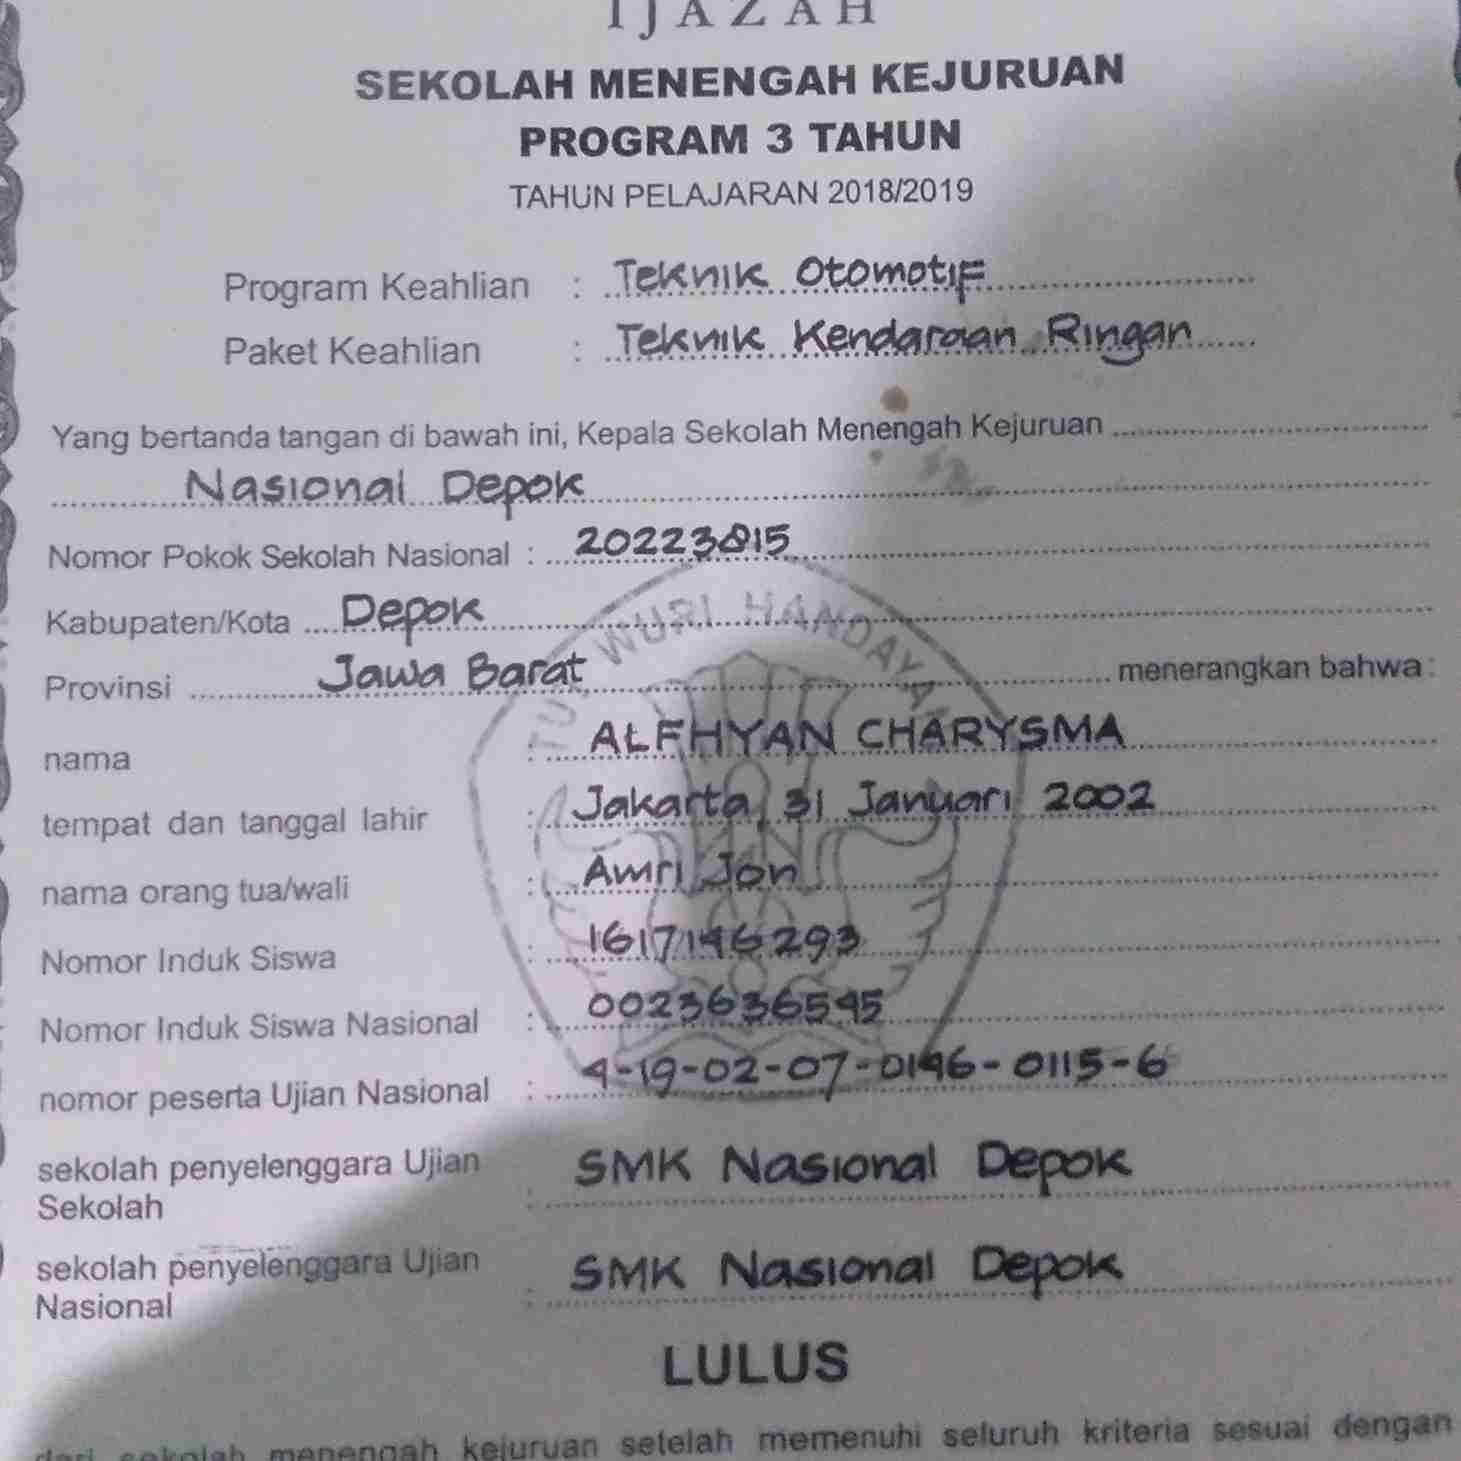 IJAZAH
SEKOLAH MENENGAH KEJURUAN
PROGRAM 3 TAHUN
TAHUN PELAJARAN 2018/2019
Program Keahlian : Teknik Otomotif
Paket Keahlian : Teknik Kendaraan Ringan
Yang bertanda tangan di bawah ini, Kepala Sekolah Menengah Kejuruan
Nasional Depok
Nomor Pokok Sekolah Nasional : 20223815
Kabupaten/Kota Depok
TUT WURI HANDAYANI
Provinsi Jawa Barat menerangkan bahwa :
nama : ALFHYAN CHARYSMA
tempat dan tanggal lahir : Jakarta, 31 Januari 2002
nama orang tua/wali : Amri Jon
Nomor Induk Siswa : 1617146293
Nomor Induk Siswa Nasional : 0023636545
nomor peserta Ujian Nasional : 4-19-02-07-0146-0115-6
sekolah penyelenggara Ujian
Sekolah : SMK Nasional Depok
sekolah penyelenggara Ujian
Nasional : SMK Nasional Depok
LULUS
dari sekolah menengah kejuruan setelah memenuhi seluruh kriteria sesuai dengan